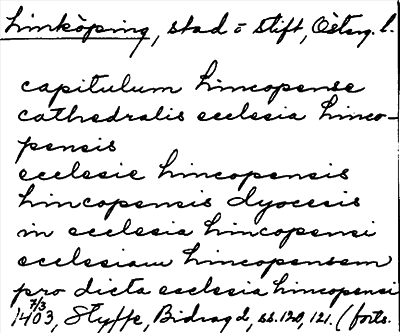 Linköping, stad o stift, Österg. l.
capitulum lincopense
cathedralis ecclesia linco-
pensis
ecclesie lincopensis
lincopensis dyocesis
in ecclesia lincopensi
ecclesiam lincopensem
pro dicta ecclesia lincopensi
7/3
1403, Styffe, Bidrag 2, ss. 120, 121. (forts.